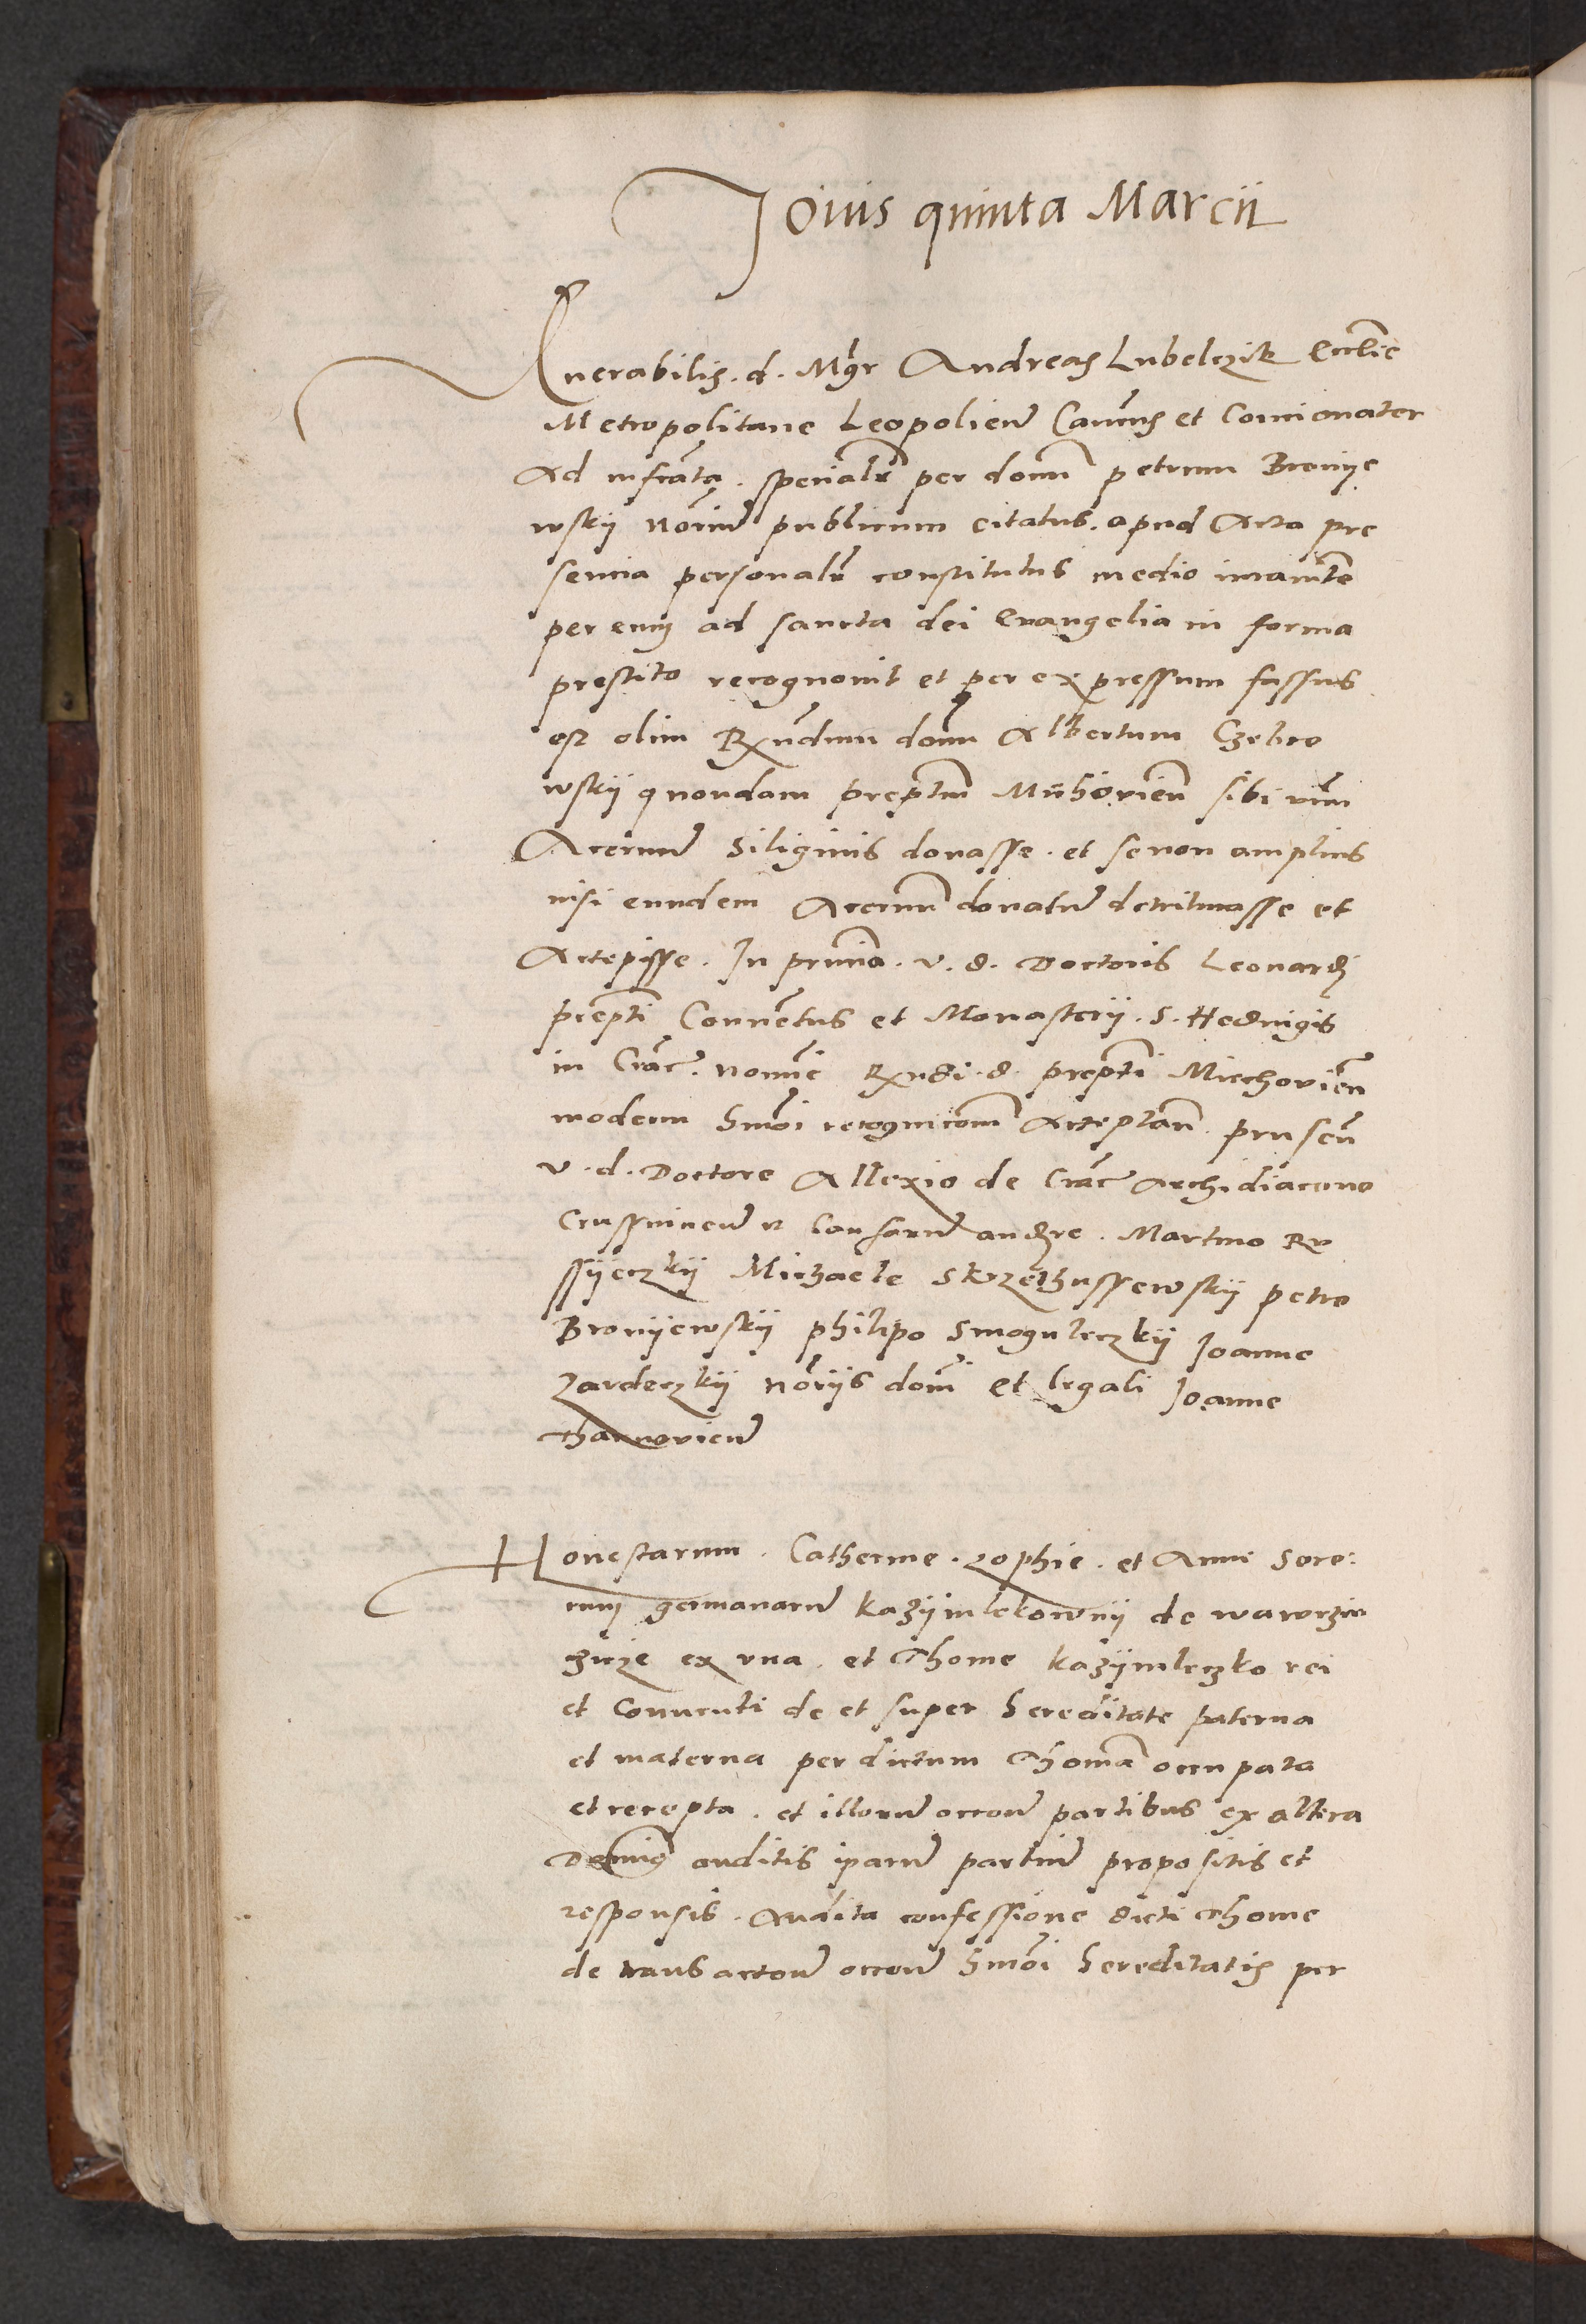 Jovis quinta Marcii
Venerabilis . d . Mgr Andreas Lubelczik Ecclie
Metropolitane Leopolien Cancus et Concionator
Ad infrata . specialr per donu petrum Broniye
wskij noriu publicum citatus . apud Acta pre
sencia personalr constitutus medio iuramto
per eum ad sancta dei Evangelia in forma
prestito recognovit et per expressum fassus
est olim Rndum donu Albertum Czebro
wskij quondam preptm Miihovien sibi unu
Acervu Siliginis donasse . et se non amplius
nisi eundem Acervu donatu detriturasse et
Accepisse . In prncia . v . d . Doctoris Leonardi
prepti Conventus et Monasterii . S . Hedvigis
in Crac . nomie Rndi . d . prepti Miechovien
modern hmoi recognicom Acceptan . pns
v . d . Doctore Allexio de Crac Archidiacono
Crusvicien et Causaru audre . Martino Ro
ssijeczkij Michaele Skrzethussewskij petro
Bronijewskij philipo Smoguleczkij Joanne
Zardeczkij noriis domi et legali Joanne
Tharnovien
Honestarum . Catherine . zophie . et Anne Soro:
rum germanaru kazijmlekownij de wawrzin
zicze ex una . et Thome kazijmleczko rei
et Conventi de et super hereditate paterna
et materna per dictum Thoma occupata
et recepta . et illorum occone partibus ex altera
Dominus auditis iparu partiu propositis et
responsis . Audita confessione dicti Thome
de transactone occone hmoi hereditatis per